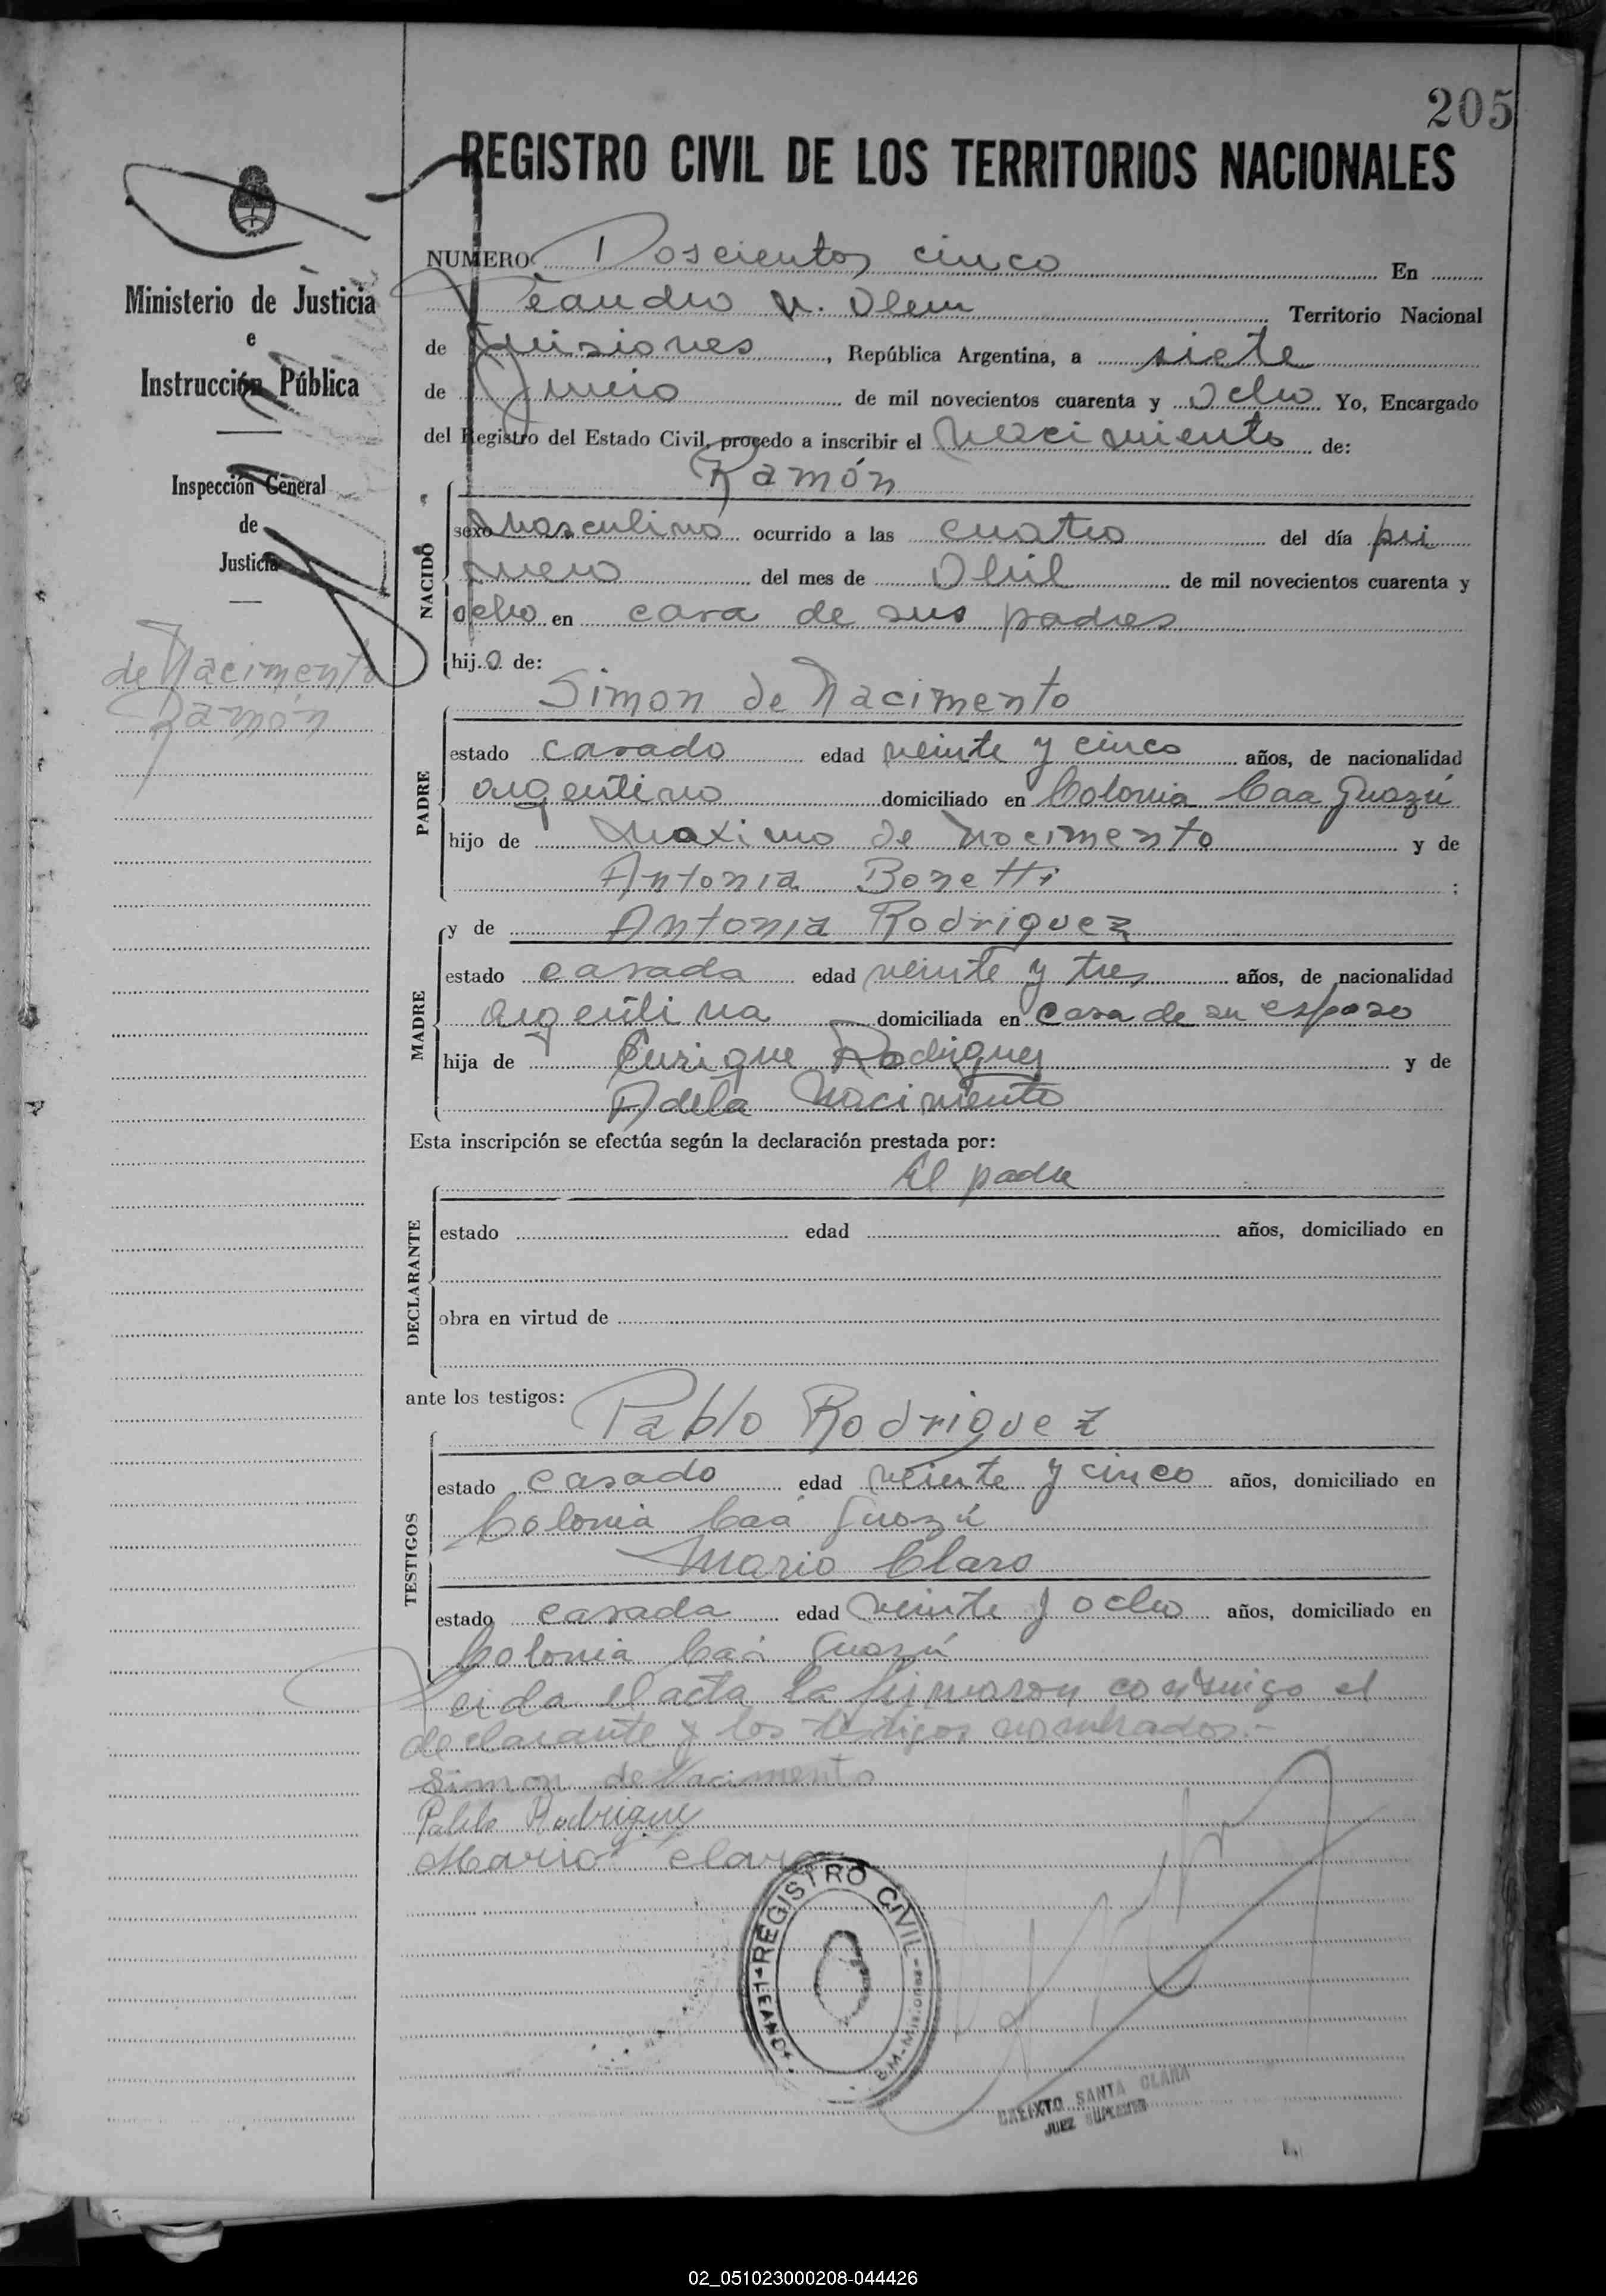 205
REGISTRO CIVIL DE LOS TERRITORIOS NACIONALES
Ministerio de Justicia
e
Instrucción Pública
Inspección General
de
Justicia
de Nacimento
Ramón
NUMERO Doscientos cinco En
Leandro N. Alem Territorio Nacional
de Misiones, República Argentina, a siete
de Junio de mil novecientos cuarenta y Ocho Yo, Encargado
del Registro del Estado Civil, procedo a inscribir el Nacimiento de:
Ramón
NACIDO
sexo Masculino ocurrido a las cuatro del día pri
mero del mes de Abril de mil novecientos cuarenta y
ocho en casa de sus padres
hijo de:
Simon de Nacimento
PADRE
estado casado edad veinte y cinco años, de nacionalidad
argentino domiciliado en Colonia Caa Guazú
hijo de Maximo de Nacimento y de
Antonia Bonetti ;
y de Antonia Rodriguez
MADRE
estado casada edad veinte y tres años, de nacionalidad
argentina domiciliada en casa de su esposo
hija de Enrique Rodriguez y de
Adela Nacimiento
Esta inscripción se efectúa según la declaración prestada por:
El padre
DECLARANTE
estado edad años, domiciliado en
obra en virtud de
ante los testigos:
Pablo Rodriguez
TESTIGOS
estado casado edad veinte y cinco años, domiciliado en
Colonia Caá Guazú
Mario Claro
estado casada edad veinte y ocho años, domiciliado en
Colonia Caá Guazú
Leida el acta la firmaron conmigo el
declarante y los testigos nombrados.-
Simon de Nacimento
Pablo Rodriguez
Mario Claro
REGISTRO CIVIL
LEAND
Misiones
SANTA CLARA
JUEZ SUPLENTE
02_051023000208-044426